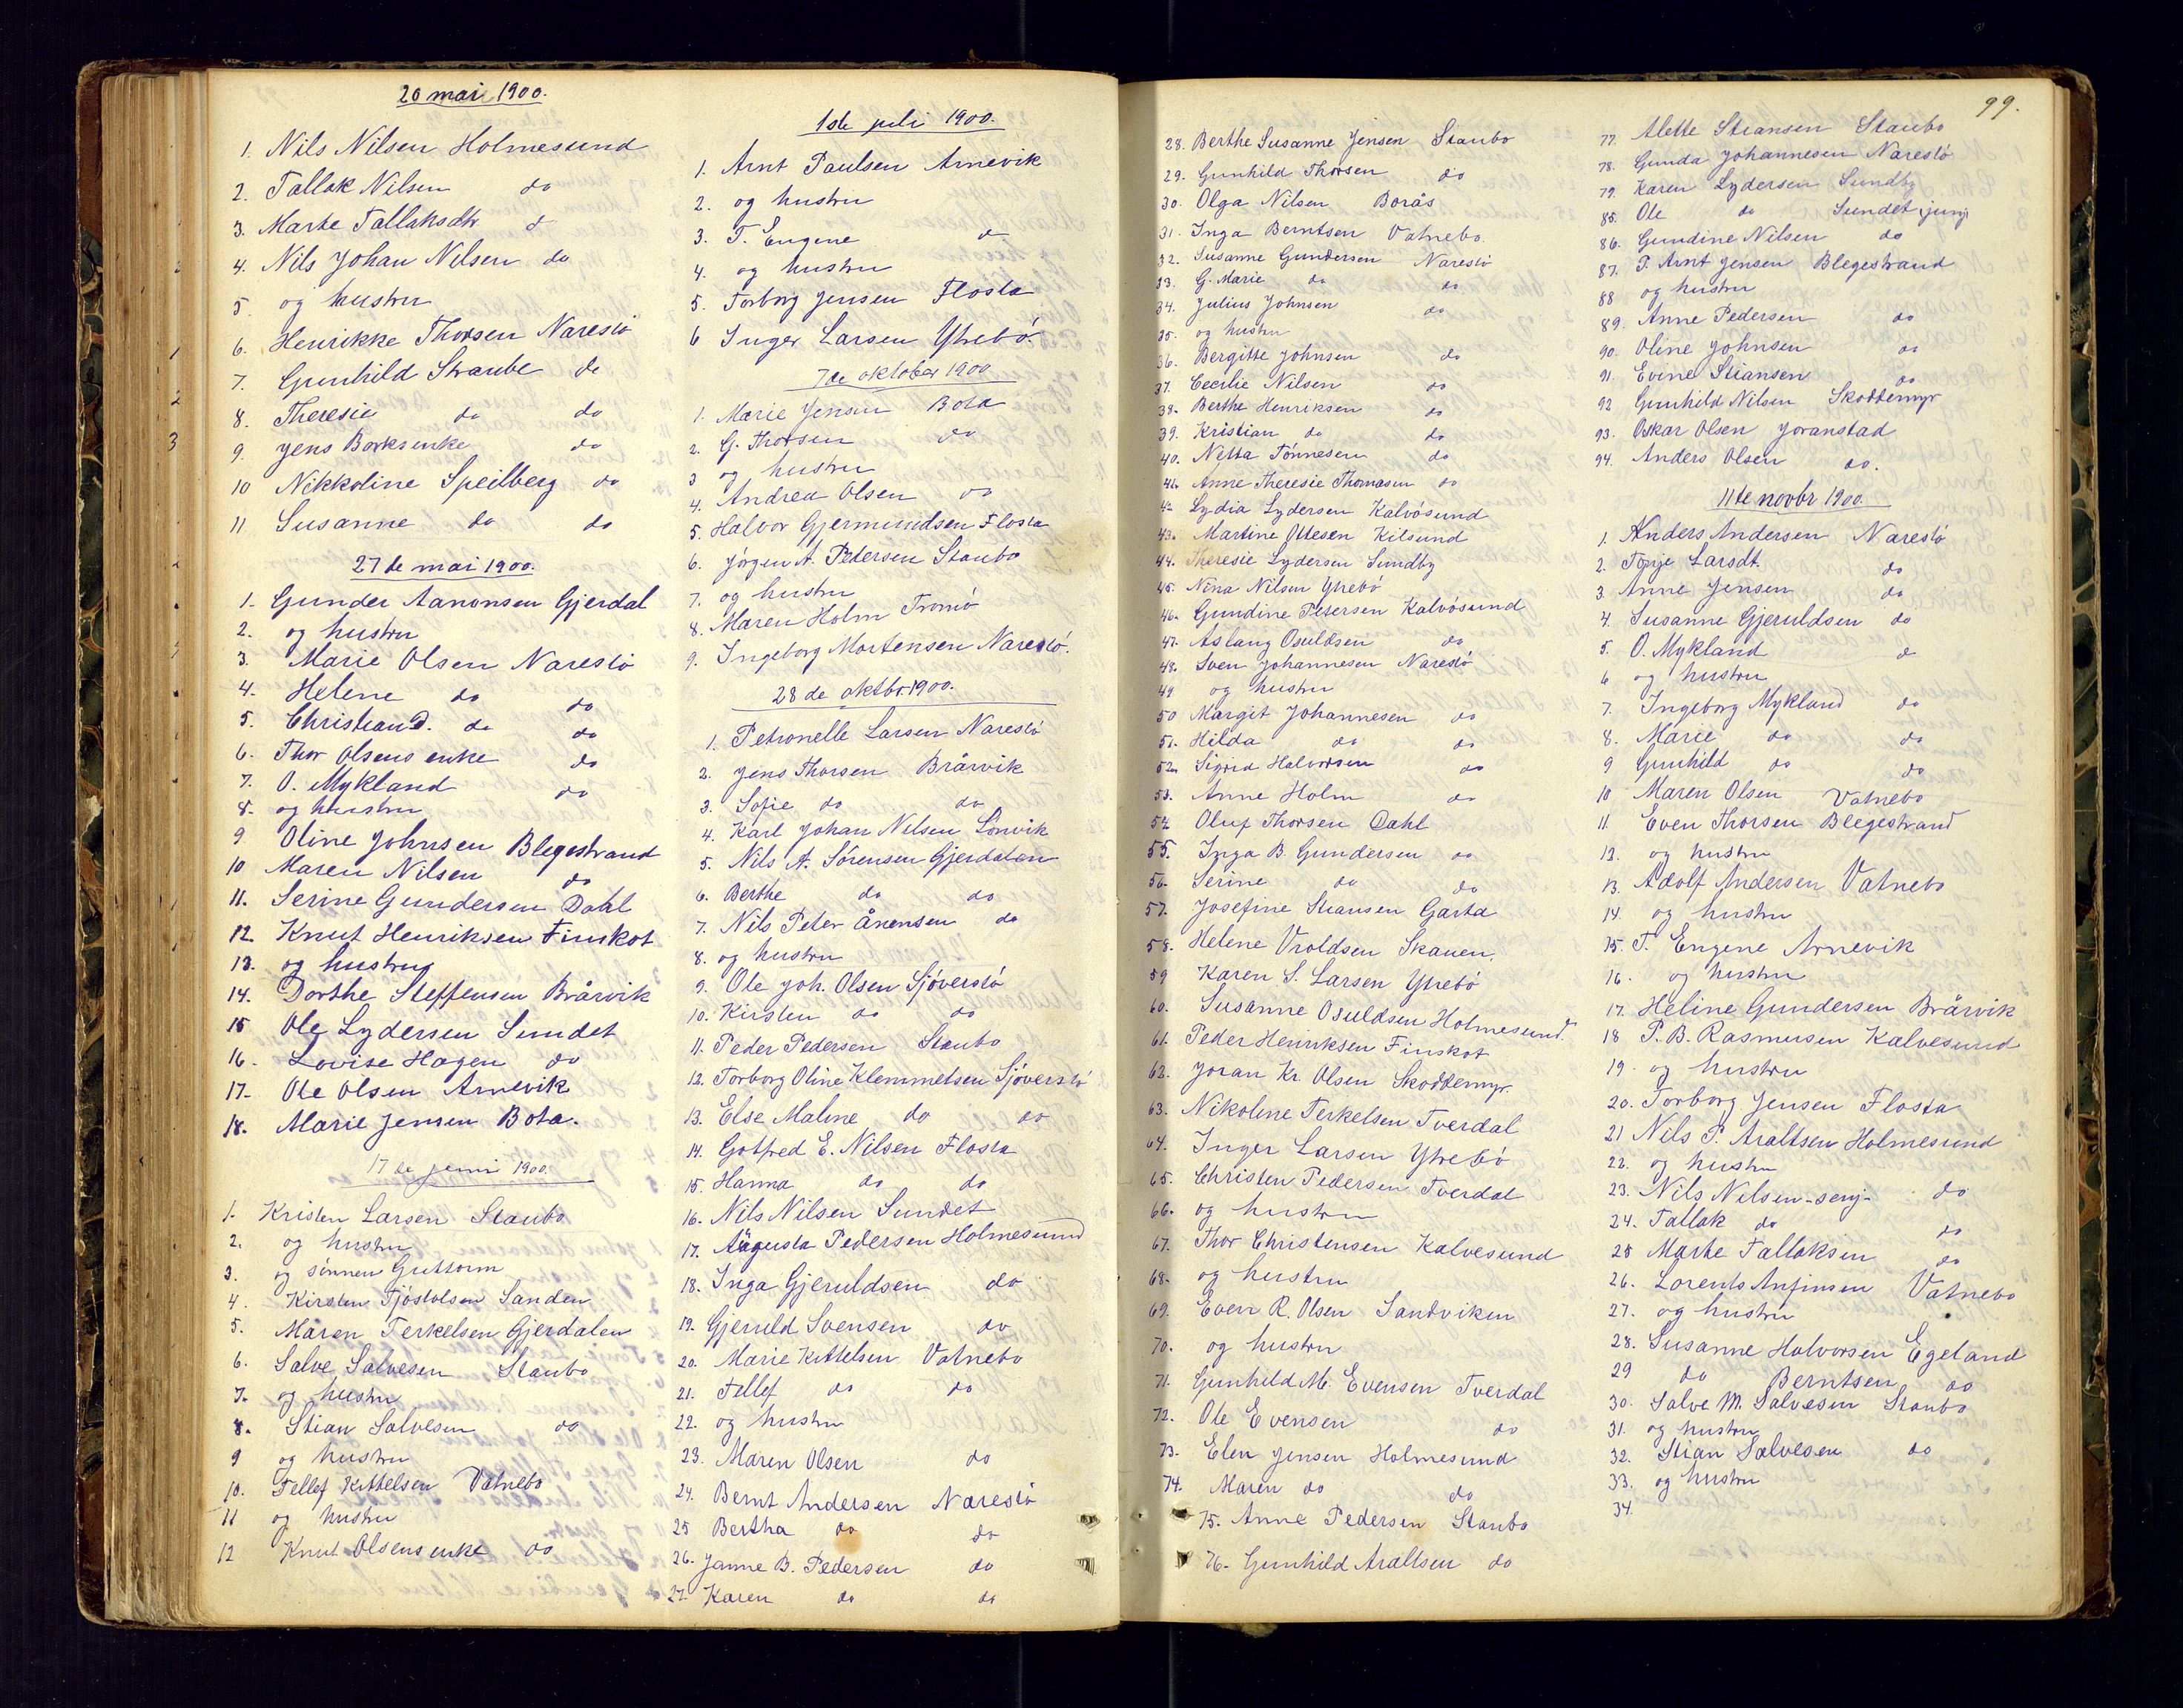 20 mai 1900.
1. Nils Nilsen Holmesund
2. Tallak Nilsen do
3. Marte Tallaksdtr d
4. Nils Johan Nilsen do
5 og hustru
6. Henrikke Thorsen Narestö
7. Gunhild Straube do
8. Theresie do do
9. Jens Borksenke do
10 Nikkoline Speilberg do
11 Susanne do do
27de mai 1900.
1. Gunder Aanonsen Gjerdal
2. og hustru
3. Marie Olsen Narestö
4. Helene do do
5. Christian D. do do
6. Thor Olsens enke do
7. O. Mykland do
8. og hustru
9 Oline Johnsen Blegestrand
10 Maren Nilsen do
11. Serine Gundersen Dahl
12. Knut Henriksen Finskot
13. og hustru
14. Dorthe Steffensen Brårvik
15 Ole Lydersen Sundet
16. Lovise Hagen do
17. Ole Olsen Arnevik
18. Marie Jensen Bota.
17de juni 1900.
1. Kristen Larsen Staubo
2. og hustru
3. og sönnen Guttorm
4. Kirsten Tjöstolsen Sanden
5. Maren Terkelsen Gjerdalen
6. Salve Salvesen Staubo
7. og hustru
8. Stian Salvesen do
9 og hustru
10. Tellef Kittelsen Vatnebo
11 og hustru
12 Knut Olsens enke do
1ste juli 1900.
1. Arnt Paulsen Arnevik
2. og hustru
3. T. Eugene d
4. og hustru
5. Torborg Jensen Flosta
6 Inger Larsen Ytrebö
7de oktober 1900
1. Marie Jensen Bota
2. G. Thorsen do
3 og hustru
4. Andrea Olsen do
5. Halvor Gjermundsen Flosta
6. Jörgen A. Pedersen Staubo
7. og hustru
8. Maren Holm Tromö
9. Ingeborg Mortensen Narestö.
28de oktbr 1900.
1. Petronelle Larsen Narestö
2. Jens Thorsen Brårvik
3. Sofie do do
4. Karl Johan Nilsen Lönvik
5. Nils A. Sörensen Gjerdalen
6. Berthe do do
7. Nils Peter Ånensen do
8. og hustru
9. Ole Joh. Olsen Sjöverstö
10. Kirsten do do
11. Peder Pedersen Staubo
12. Torborg Oline Klemmetsen Sjöverstö
13. Else Maline do do
14. Gotfred E. Nilsen Flosta
15. Hanna do do
16. Nils Nilsen Sundet
17. Augusta Pedersen Holmesund
18. Inga Gjeruldsen do
19. Gjeruld Svensen do
20. Marie Kittelsen Vatnebo
21. Tellef do do
22. og hustru
23. Maren Olsen do
24. Bernt Andersen Narestö
25 Bertha do do
26. Janne B. Pedersen do
27. Karen do do
99.
28. Berthe Susanne Jensen Staubo
29. Gunhild Thorsen do
30. Olga Nilsen Borås
31. Inga Berntsen Vatnebo.
32. Susanne Gundersen Narestö
33. G. Marie do do
34. Julius Johnsen do
35. og hustru
36. Bergitte Johnsen do
37. Cecilie Nilsen do
38. Berthe Henriksen do
39. Kristian do do
40. Netta Tönnesen do
41. Anne Theresie Thomasen do
42 Lydia Lydersen Kalvösund
43. Martine Ottesen Kilsund
44. Theresie Lydersen Sundby
45. Nina Nilsen Ytrebö
46. Gundine Petersen Kalvösund
47. Aslaug Osuldsen do
48. Sven Johannesen Narestö
49 og hustru
50 Margit Johannesen do
51. Hilda do do
52. Sigrid Halvorsen do
53. Anne Holm do
54 Oluf Thorsen Dahl
55. Inga B. Gundersen do
56. Serine do do
57. Josefine Stiansen Garta
58. Helene Vroldsen Skauen.
59 Karen S. Larsen Ytrebö
60. Susanne Osuldsen Holmesund.
61. Peder Henriksen Finskot
62. Joran Kr. Olsen Skottemyr.
63. Nikoline Terkelsen Tverdal
64. Inger Larsen Ytrebö
65. Christen Pedersen Tverdal
66. og hustru
67. Thor Christensen Kalvesund
68. og hustru
69. Even R. Olsen Sandviken
70. og hustru
71. Gunhild M. Evensen Tverdal
72. Ole Evensen do
73. Elen Jensen Holmesund
74. Maren do do
75. Anne Pedersen Staubo
76. Gunhild Araltsen do
77. Alette Stiansen Staubo
78. Gunda Johannesen Narestö
79. Karen Lydersen Sundby
85. Ole do Sundet junj
86. Gundine Nilsen do
87. P. Arnt Jensen Blegestrand
88 og hustru
89. Anne Pedersen do
90. Oline Johnsen do
91. Evine Stiansen do
92 Gunhild Nilsen Skottemyr
93. Oskar Olsen Joranstad
94. Anders Olsen do.
11te novbr 1900.
1. Anders Andersen Narestö
2. Tonje Larsdt. do
3. Anne Jensen do
4. Susanne Gjeruldsen do
5. O. Mykland d
6 og hustru
7. Ingeborg Mykland do
8. Marie do do
9 Gunhild do do
10 Maren Olsen Vatnebo
11. Even Thorsen Blegestrand
12. og hustru
13. Adolf Andersen Vatnebo
14. og hustru
15. T. Eugene Arnevik
16. og hustru
17. Heline Gundersen Brårvik
18 P. B. Rasmusen Kalvesund
19. og hustru
20. Torborg Jensen Flosta
21 Nils P. Araltsen Holmesund
22. og hustru
23. Nils Nilsen senj. do
24. Tallak do do
25 Marte Tallaksen do
26. Lorents Anfinsen Vatnebo
27. og hustru
28. Susanne Halvorsen Egeland
29 do Berntsen do
30. Salve M. Salvesen Staubo
31. og hustru
32. Stian Salvesen do
33. og hustru
34.